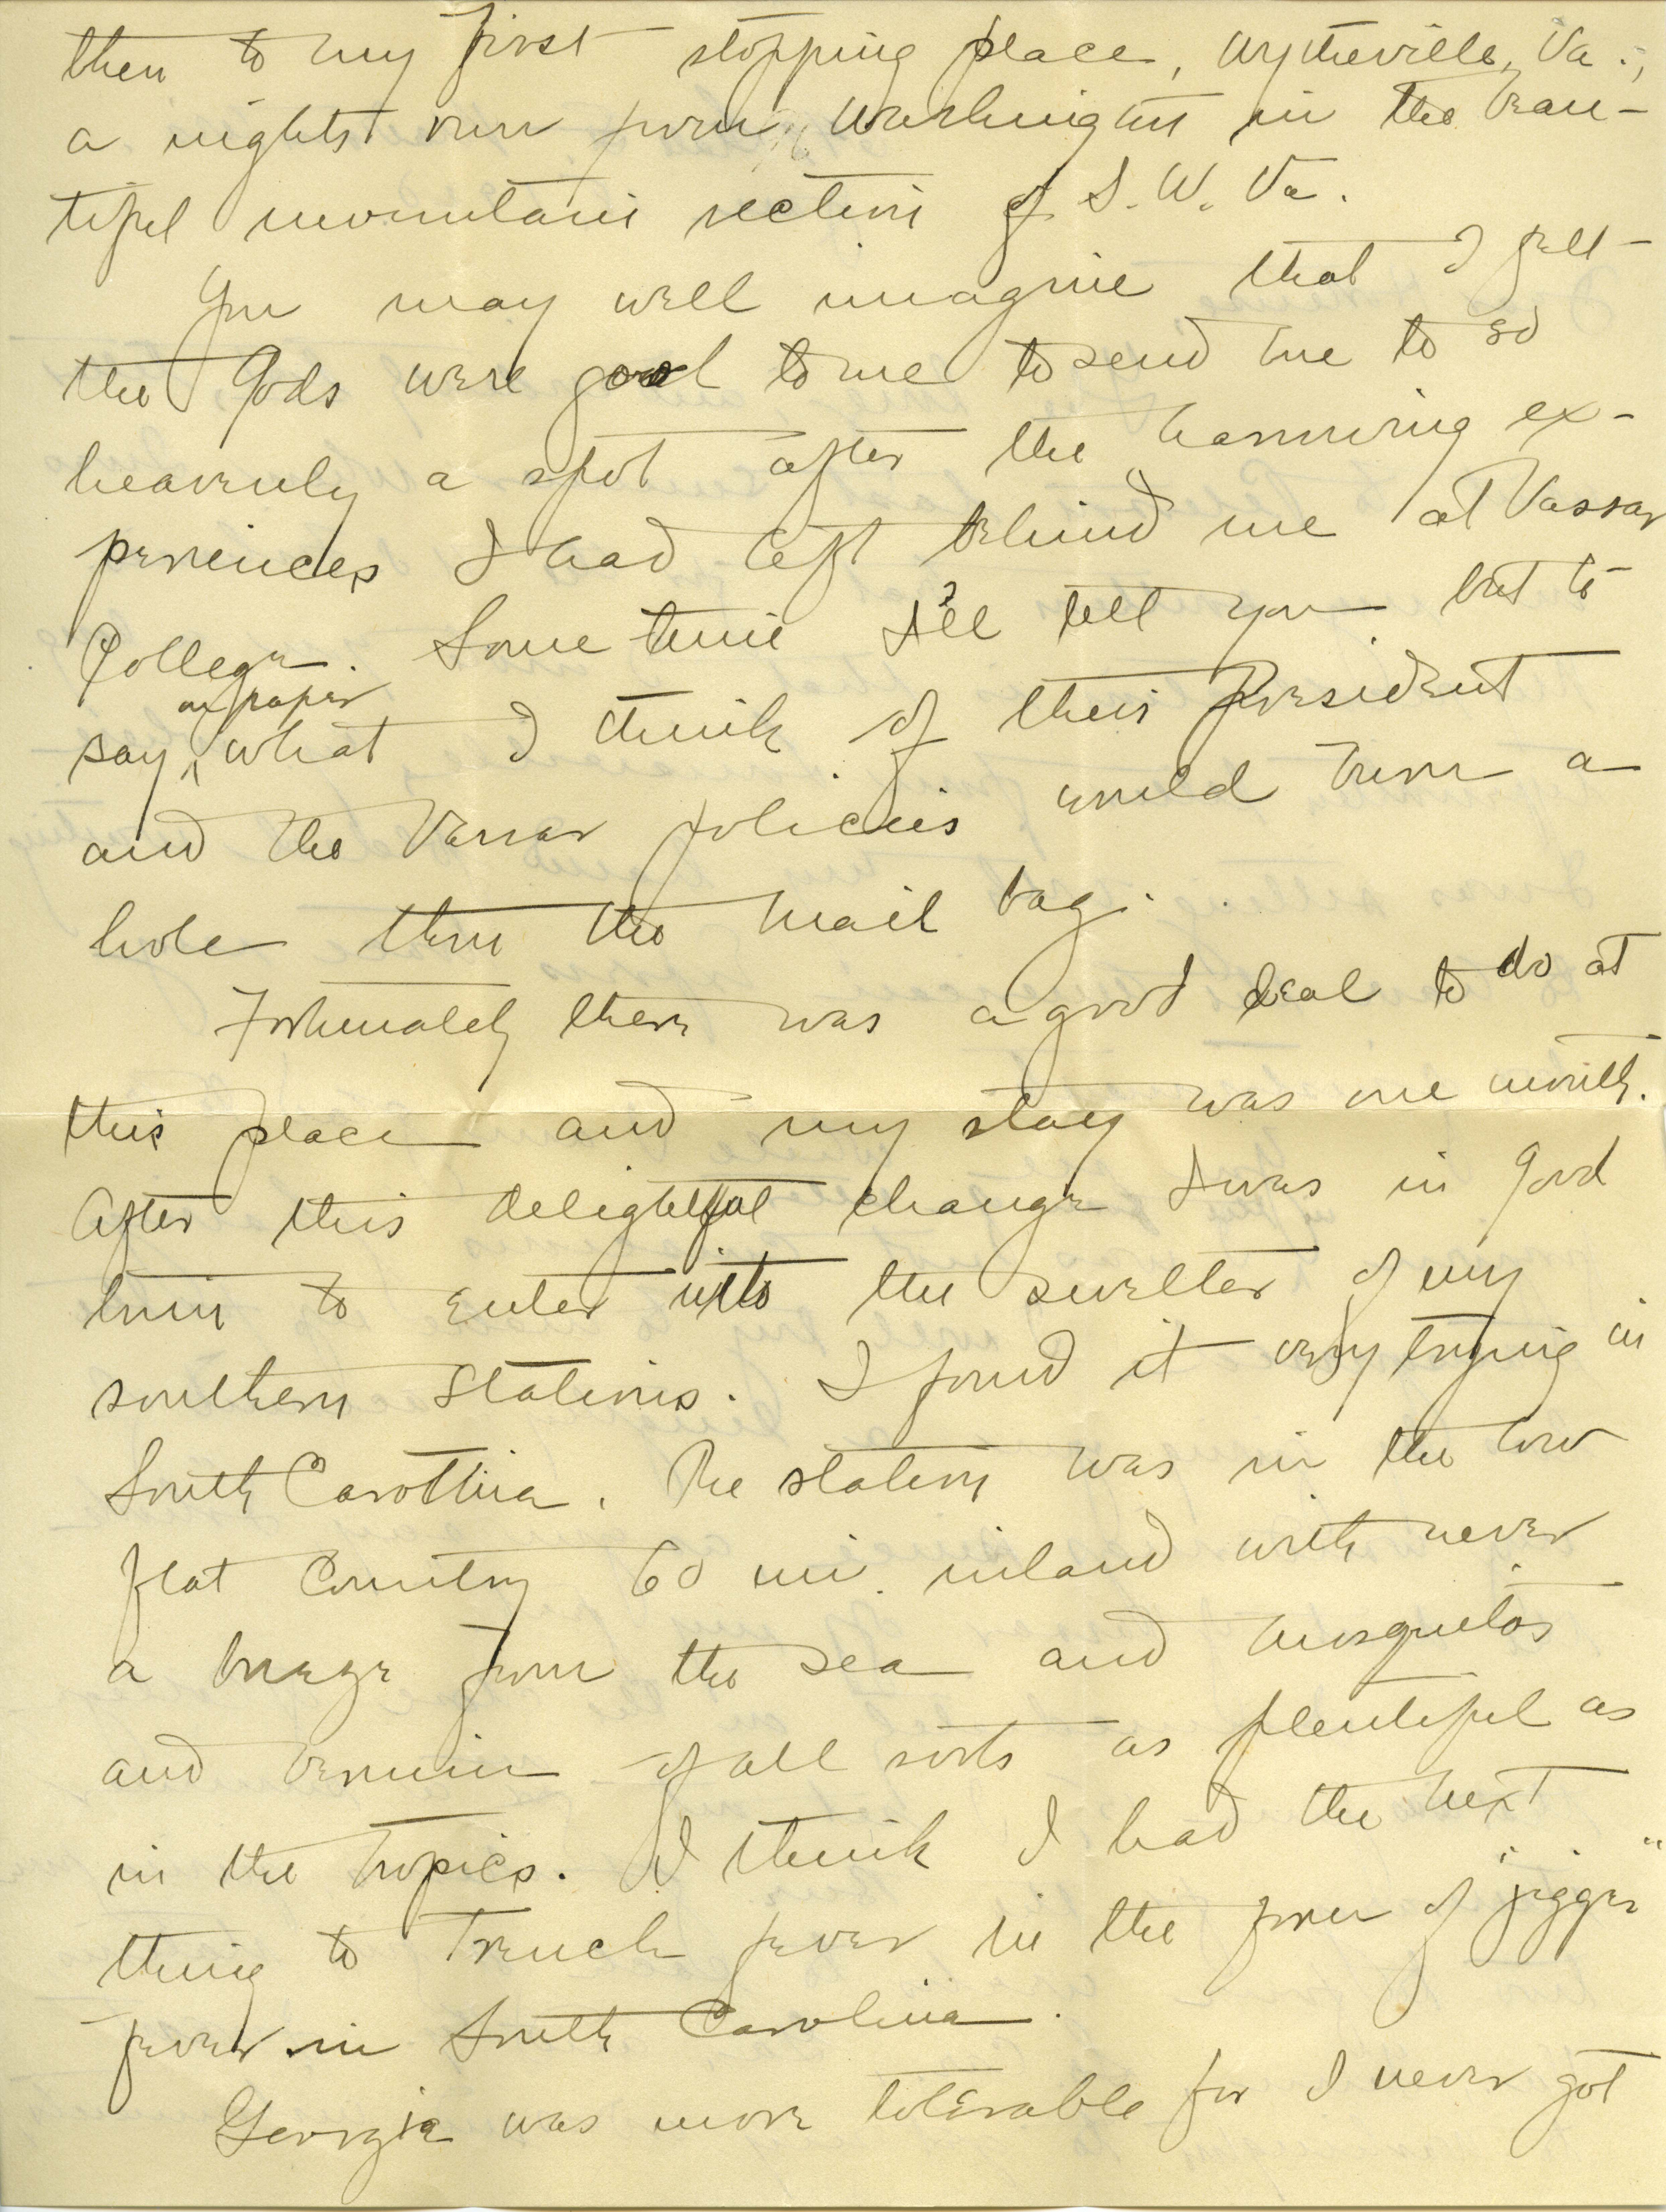 then to my first stopping place, Wytheville, Va.,
a nights run from Washington in the beau-
tiful mountain section of S. W. Va.
You may well imagine that I felt
the Gods were good to me to send me to so
heavenly a spot after the harrowing ex-
periences I had left behind me at Vassar
College. Some time I'll tell you but to
on paper
say what I think of their President
and the Vassar policies would burn a
hole thru the mail bag.
Fortunately there was a good deal to do at
this place and my stay was one month.
After this delightful change I was in good
trim to enter into the swelter of my
southern stations. I found it very trying in
South Carolina. The station was in the low
flat country 60 mi. inland with never
a breeze from the sea and mosquitos
and vermin of all sorts as plentiful as
in the tropics. I think I had the next
thing to Trench fever in the form of "jigger"
fever in South Carolina.
Georgia was more tolerable for I never got